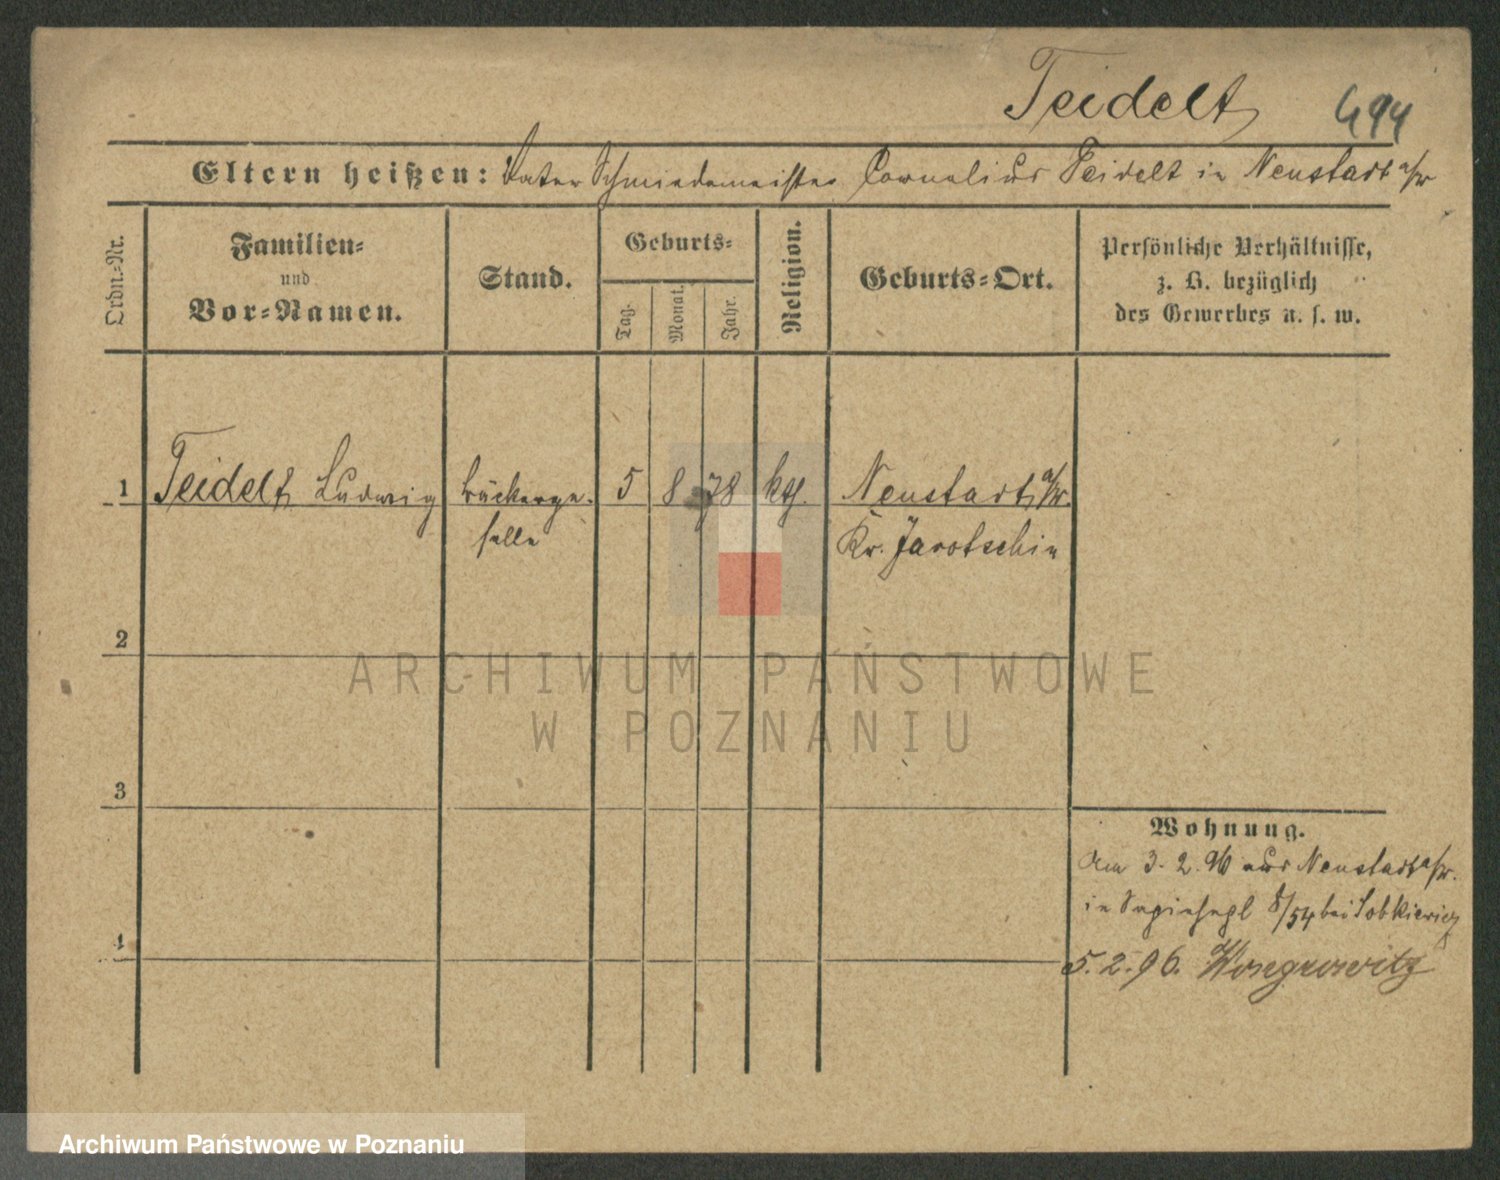 Teidelt 494
Eltern heißen: Vater Schmiedemeister Cornelius Teidelt in Neustadt a/W
Ordn.-Nr.
Familien-
und
Vor-Namen.
Stand.
Geburts-
Tag.
Monat.
Jahr.
Religion.
Geburts-Ort.
Persönliche Verhältnisse,
z. B. bezüglich
des Gewerbes u. s. w.
1 Teidelt Ludwig Bäckerge- 5 8 78 kth. Neustadt a/W.
selle Kr. Jarotschin
2
ARCHIWUM PAŃSTWOWE
W POZNANIU
3
Wohnung.
Am 3. 2. 96 aus Neustadt a/W.
in Sapiehapl 8/54 bei Sobkiewicz
4
5. 2. 96.
Archiwum Państwowe w Poznaniu